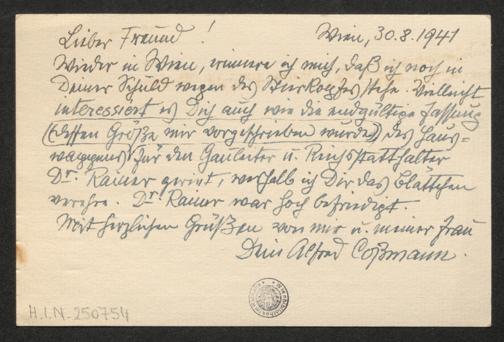 Lieber Freund! Wien, 30.8.1941
Wieder in Wien, erinnere ich mich, daß ich noch in
Deiner Schuld wegen des Stierkopfes stehe. Vielleicht
interessiert es Dich auch wie die endgültige Fassung
(dessen Größe mir vorgeschrieben wurde) des Haus-
wappens für den Gauleiter u. Reichsstatthalter
Dr. Rainer geriet, weshalb ich Dir das Blättchen
verehre. Dr. Rainer war hoch befriedigt.
Mit herzlichen Grüßen von mir u. meiner Frau
Dein Alfred Coßmann.
H.I.N.-250754